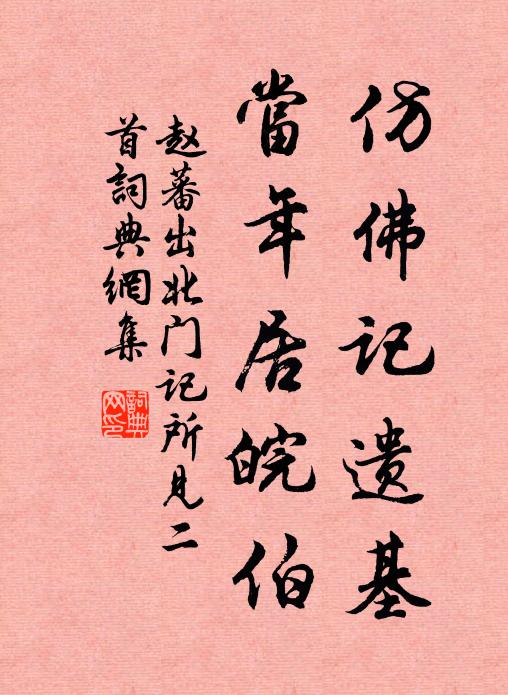 仿佛记遗基
當年居皖伯
赵蕃出北门记所见二
首詞典網集
詞典网印